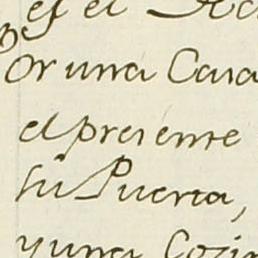 es el
Por una Casa
el presente
su Puerta,
y una Cozin